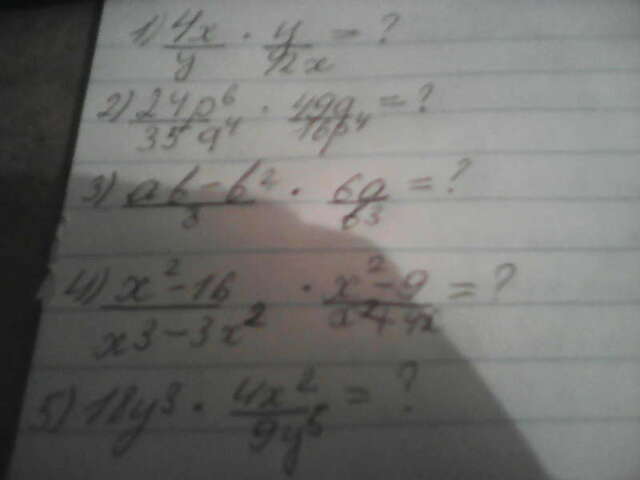 1) 4x/y · y/12x = ?
2) 24p⁶/35q⁴ · 49q/16p⁴ = ?
3) ab-b²/8 · 6a/b³ = ?
4) x²-16/x3-3x² · x²-9/x²+4x = ?
5) 18y³ · 4x²/9y⁵ = ?